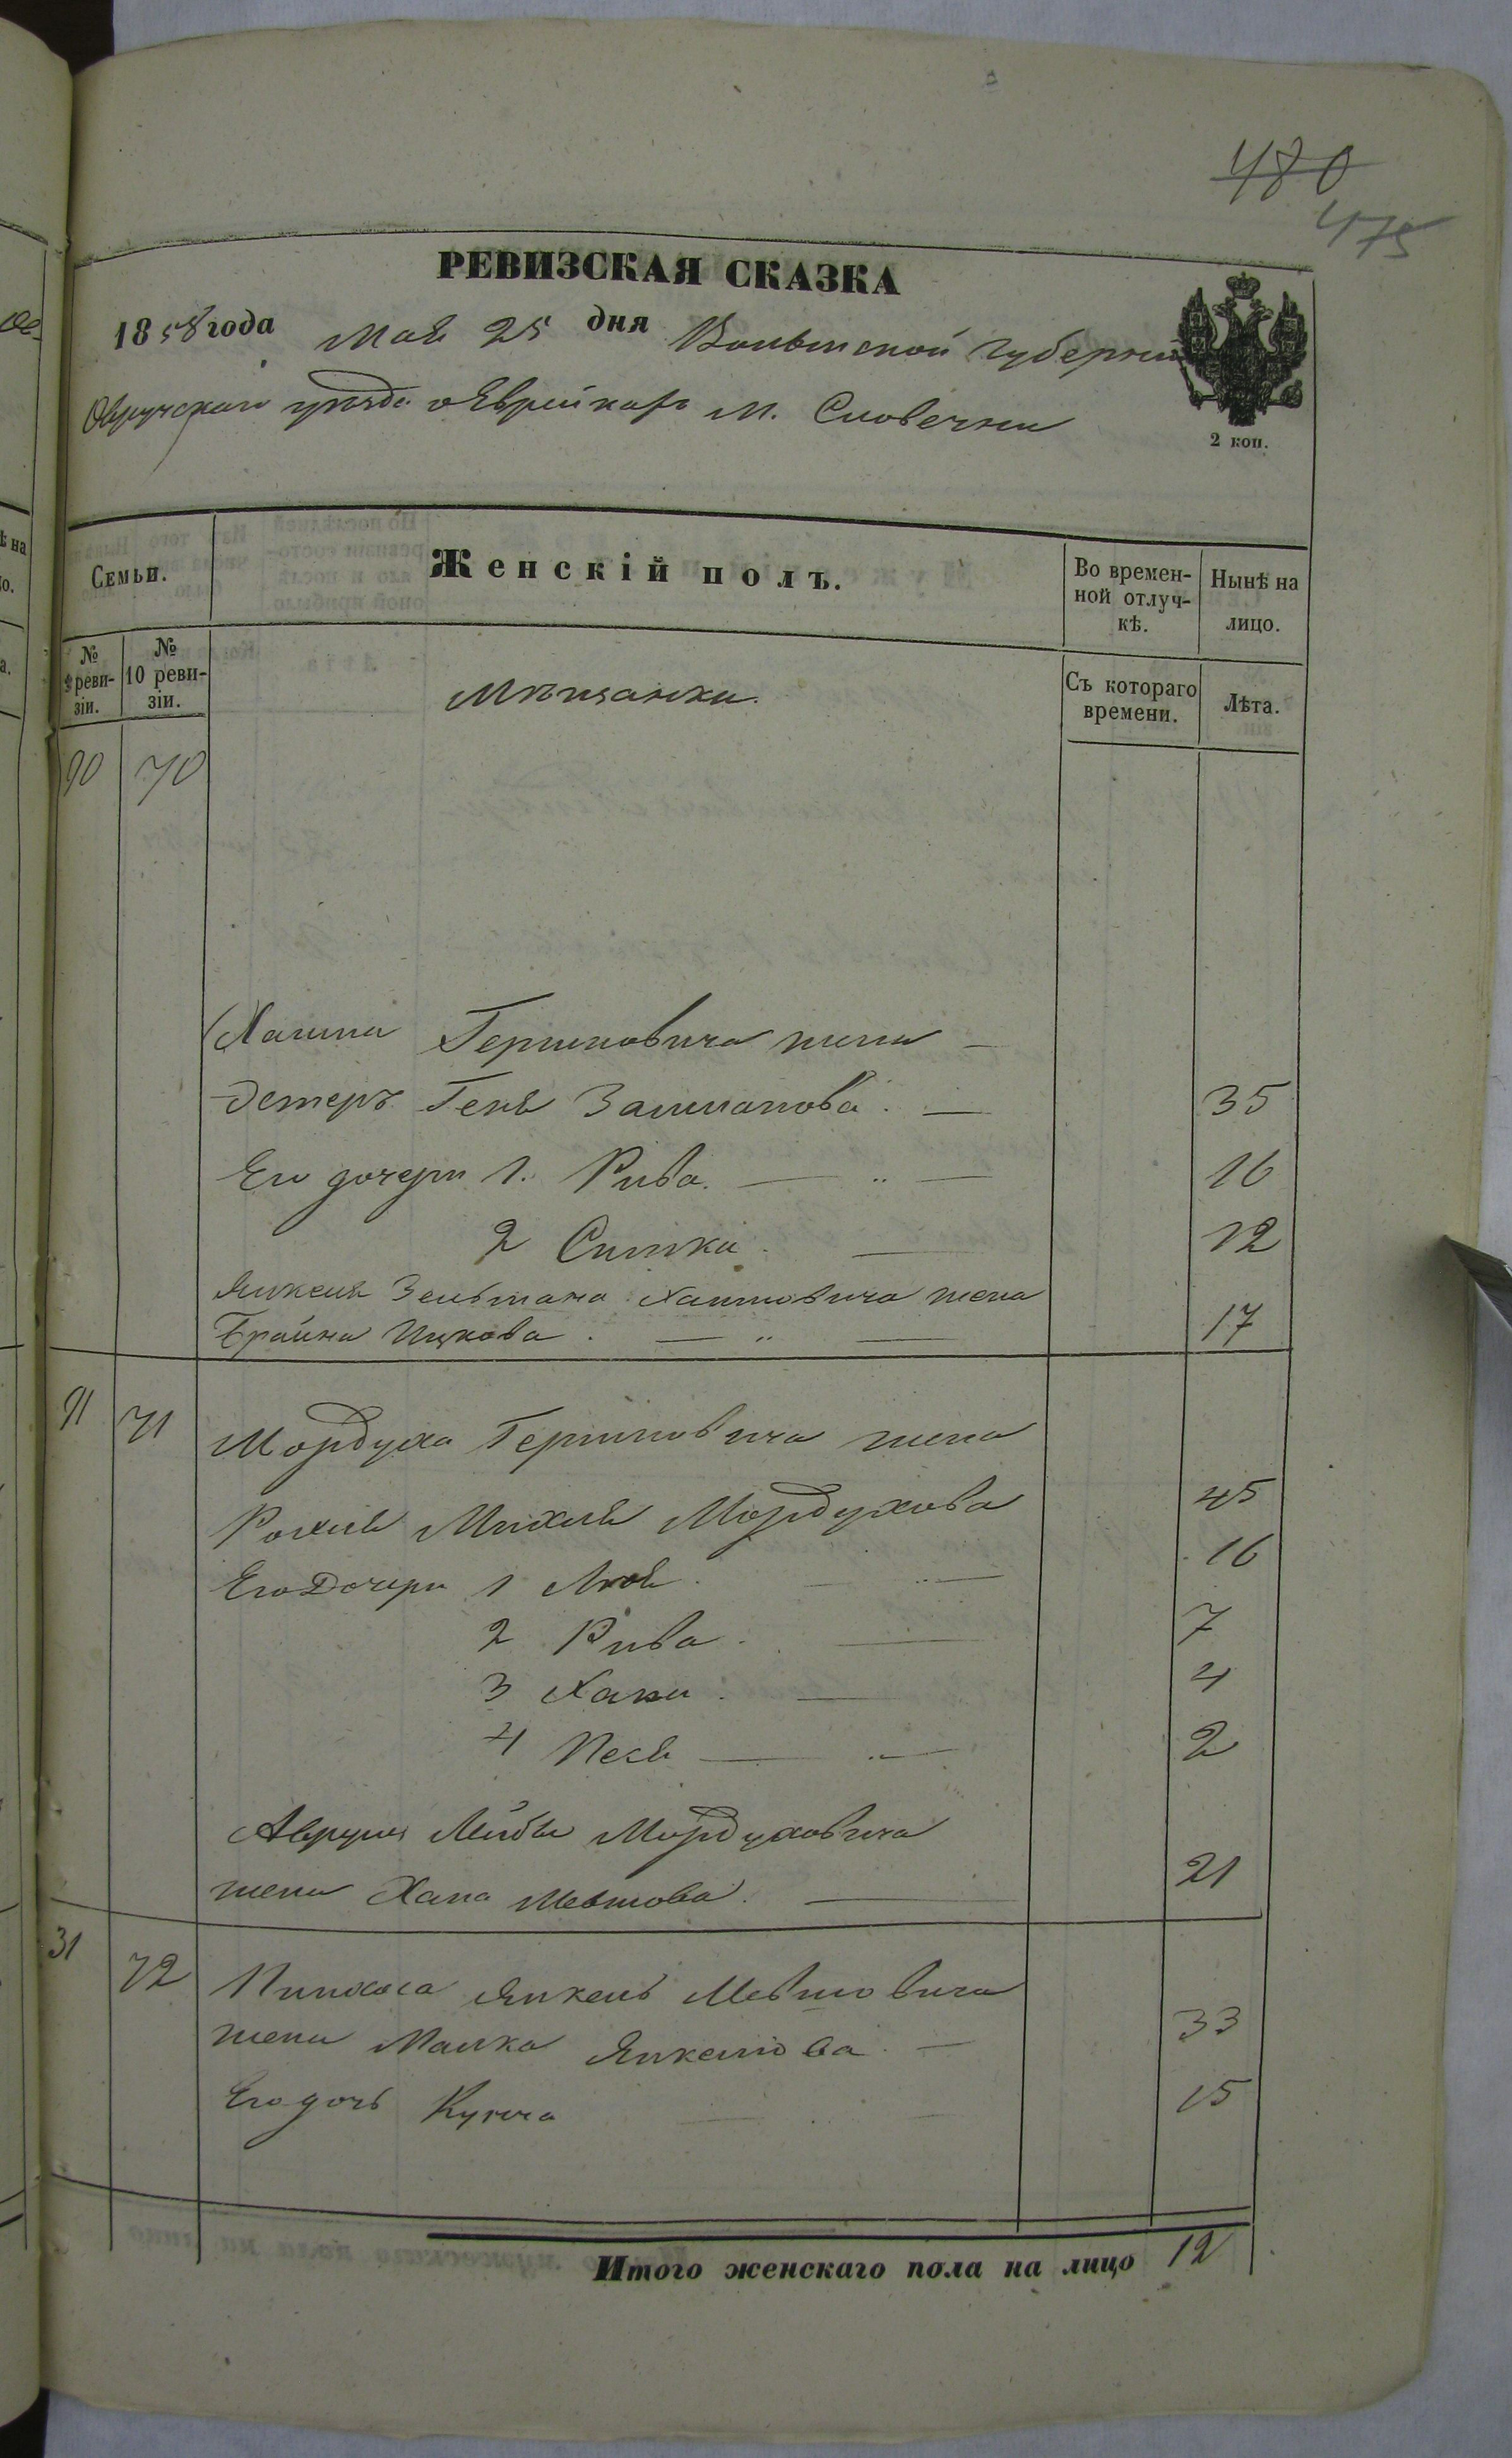 480
475
РЕВИЗСКАЯ СКАЗКА
1858 года Мая 25 дня Волынской губернии
Овручскаго уѣзда о Еврейкахъ м. Словечни
2 коп.
Семьи.
Женскій полъ.
Во времен-
ной отлуч-
кѣ.
Нынѣ на
лицо.
№
9 реви-
зіи.
№
10 реви-
зіи.
Мѣщанки.
Съ котораго
времени.
Лѣта.
90 70
Хаима Гершковича жена —
Эстеръ Геня Залманова. — 35
Его дочери 1. Рива. — " — 16
2 Симка. — 12
Янкеля Зельмана Хаимовича жена
Брайна Ицкова. — " — 17
91 71
Мордуха Гершковича жена
Рохля Михля Мордухова 45
Его Дочери 1 — " — 16
2 Рива. — 7
3 Хана. — 4
4 Песя — " — 2
Аврума Лейбы Мордуховича
жена Хана Мевшова. — 21
31 72
Пинхаса Янкель Мевшовича
жена Малка Янкелiова. — 33
Его дочь 15
Итого женскаго пола на лицо 12